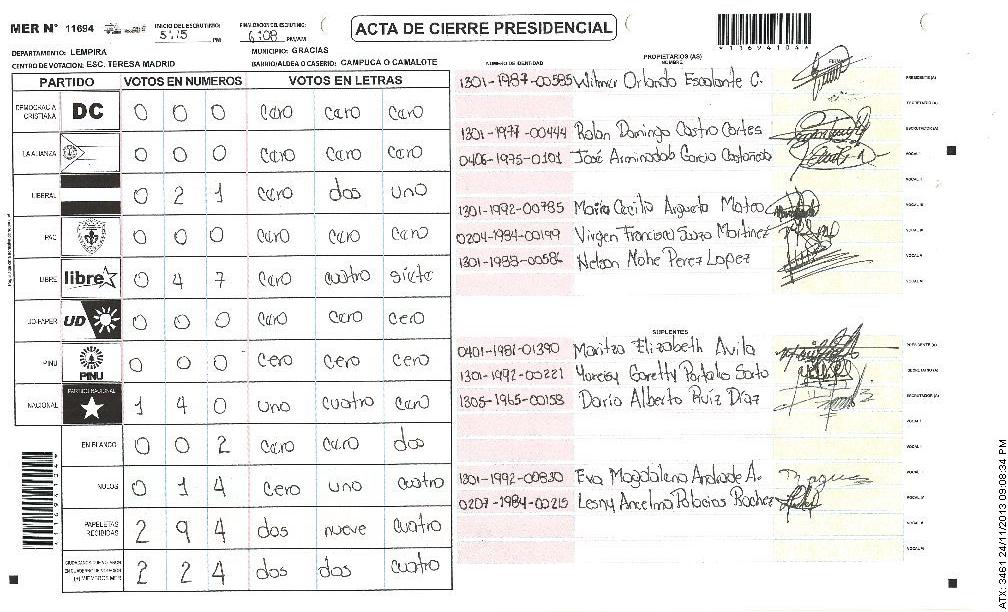 MER N° 11694 INICIO DEL ESCRUTINIO: 5:15 PM FINALIZACION DEL ESCRUTINIO: 6:08 PM/AM
ACTA DE CIERRE PRESIDENCIAL
DEPARTAMENTO: LEMPIRA MUNICIPIO: GRACIAS
CENTRO DE VOTACION: ESC. TERESA MADRID BARRIO/ALDEA O CASERIO: CAMPUCA O CAMALOTE
PARTIDO VOTOS EN NUMEROS VOTOS EN LETRAS
DEMOCRACIA CRISTIANA DC 0 0 0 cero cero cero
LA ALIANZA 0 0 0 cero cero cero
LIBERAL 0 2 1 cero dos uno
PAC 0 0 0 cero cero cero
LIBRE libre 0 4 7 cero cuatro siete
UD-FAPER UD 0 0 0 cero cero cero
PINU PINU 0 0 0 cero cero cero
NACIONAL PARTIDO NACIONAL 1 4 0 uno cuatro cero
EN BLANCO 0 0 2 cero cero dos
NULOS 0 1 4 cero uno cuatro
PAPELETAS RECIBIDAS 2 9 4 dos nueve cuatro
2 2 4 dos dos cuatro
(+) MIEMBROS MER
PROPIETARIOS (AS)
NUMERO DE IDENTIDAD NOMBRE FIRMA
1301-1987-00585 Wilmer Orlando Escalante C. PRESIDENTE (A)
SECRETARIO (A)
1301-1977-00444 Rolan Domingo Castro Cortes ESCRUTADOR (A)
0406-1975-0101 José Arminadab Garcia Castañeda VOCAL I
VOCAL II
1301-1992-00785 Maira Cecilia Argueta Mateo VOCAL III
0204-1984-00199 Virgen Francisco Suazo Martinez VOCAL IV
1301-1988-00586 Nelson Mohe Perez Lopez VOCAL V
VOCAL VI
SUPLENTES
0401-1981-01390 Maritza Elizabeth Avila PRESIDENTE (A)
1301-1992-00221 Goretty Portillo SECRETARIO (A)
1305-1965-00158 Dario Alberto Ruiz Diaz ESCRUTADOR (A)
VOCAL I
VOCAL II
1301-1992-00830 Eva Magdalena Andrade A. VOCAL III
0207-1984-00215 Lesny Ancelma Palacios VOCAL IV
VOCAL V
VOCAL VI
ATX: 3461 24/11/2013 09:08:34 PM